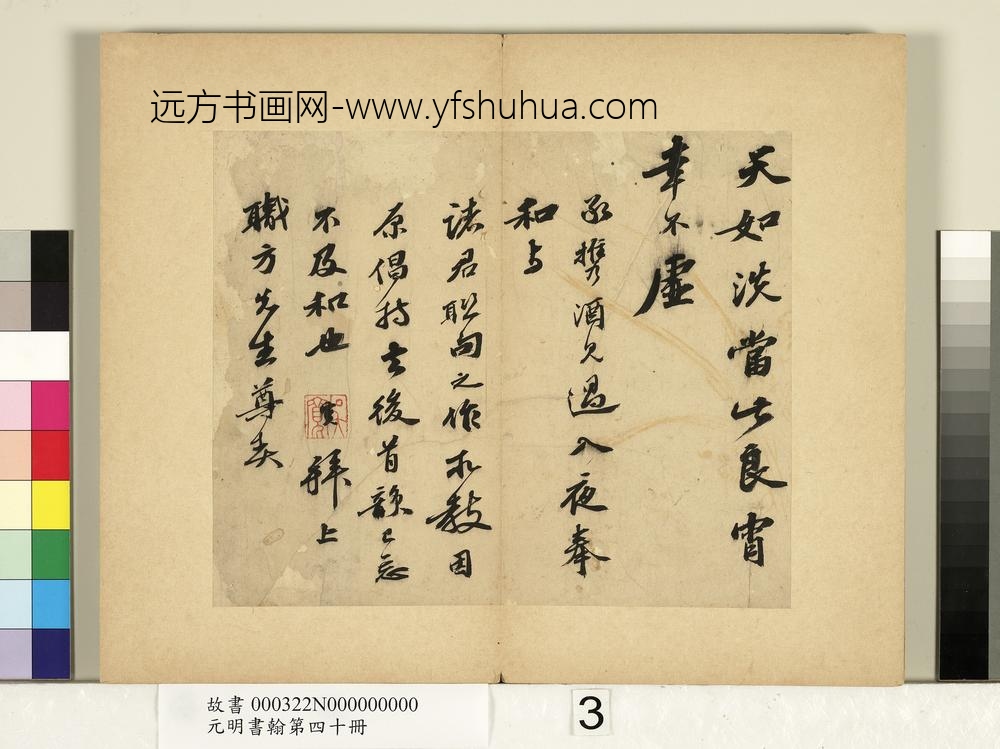 远方书画网-www.yfshuhua.com
天如洗當此良宵
幸不虛
承攜酒見過入夜奉
和与
諸君联句之作求教因
原倡持去後首韻已忘
不及和也 寬拜上
職方先生尊契
故書 000322N000000000
元明書翰第四十冊
3